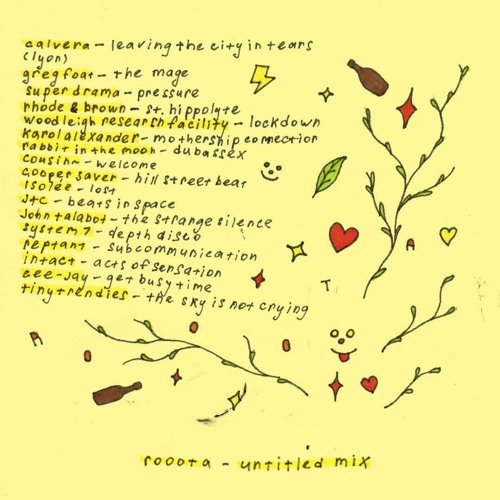 calvera - leaving the city in tears
(lyon)
greg foat - the mage
super drama - pressure
rhode & brown - st. hippolyte
woodleigh research facility - lockdown
karol alexander - mothership connection
rabbit in the moon - dubassex
cousin~ - welcome
cooper saver - hill street beat
isolée - lost
jtc - beats in space
john talabot - the strange silence
system 7 - depth disco
reptant - subcommunication
intact - acts of sensation
cee-jay - get busy time
tiny trendies - the sky is not crying
T
rooota - untitled mix